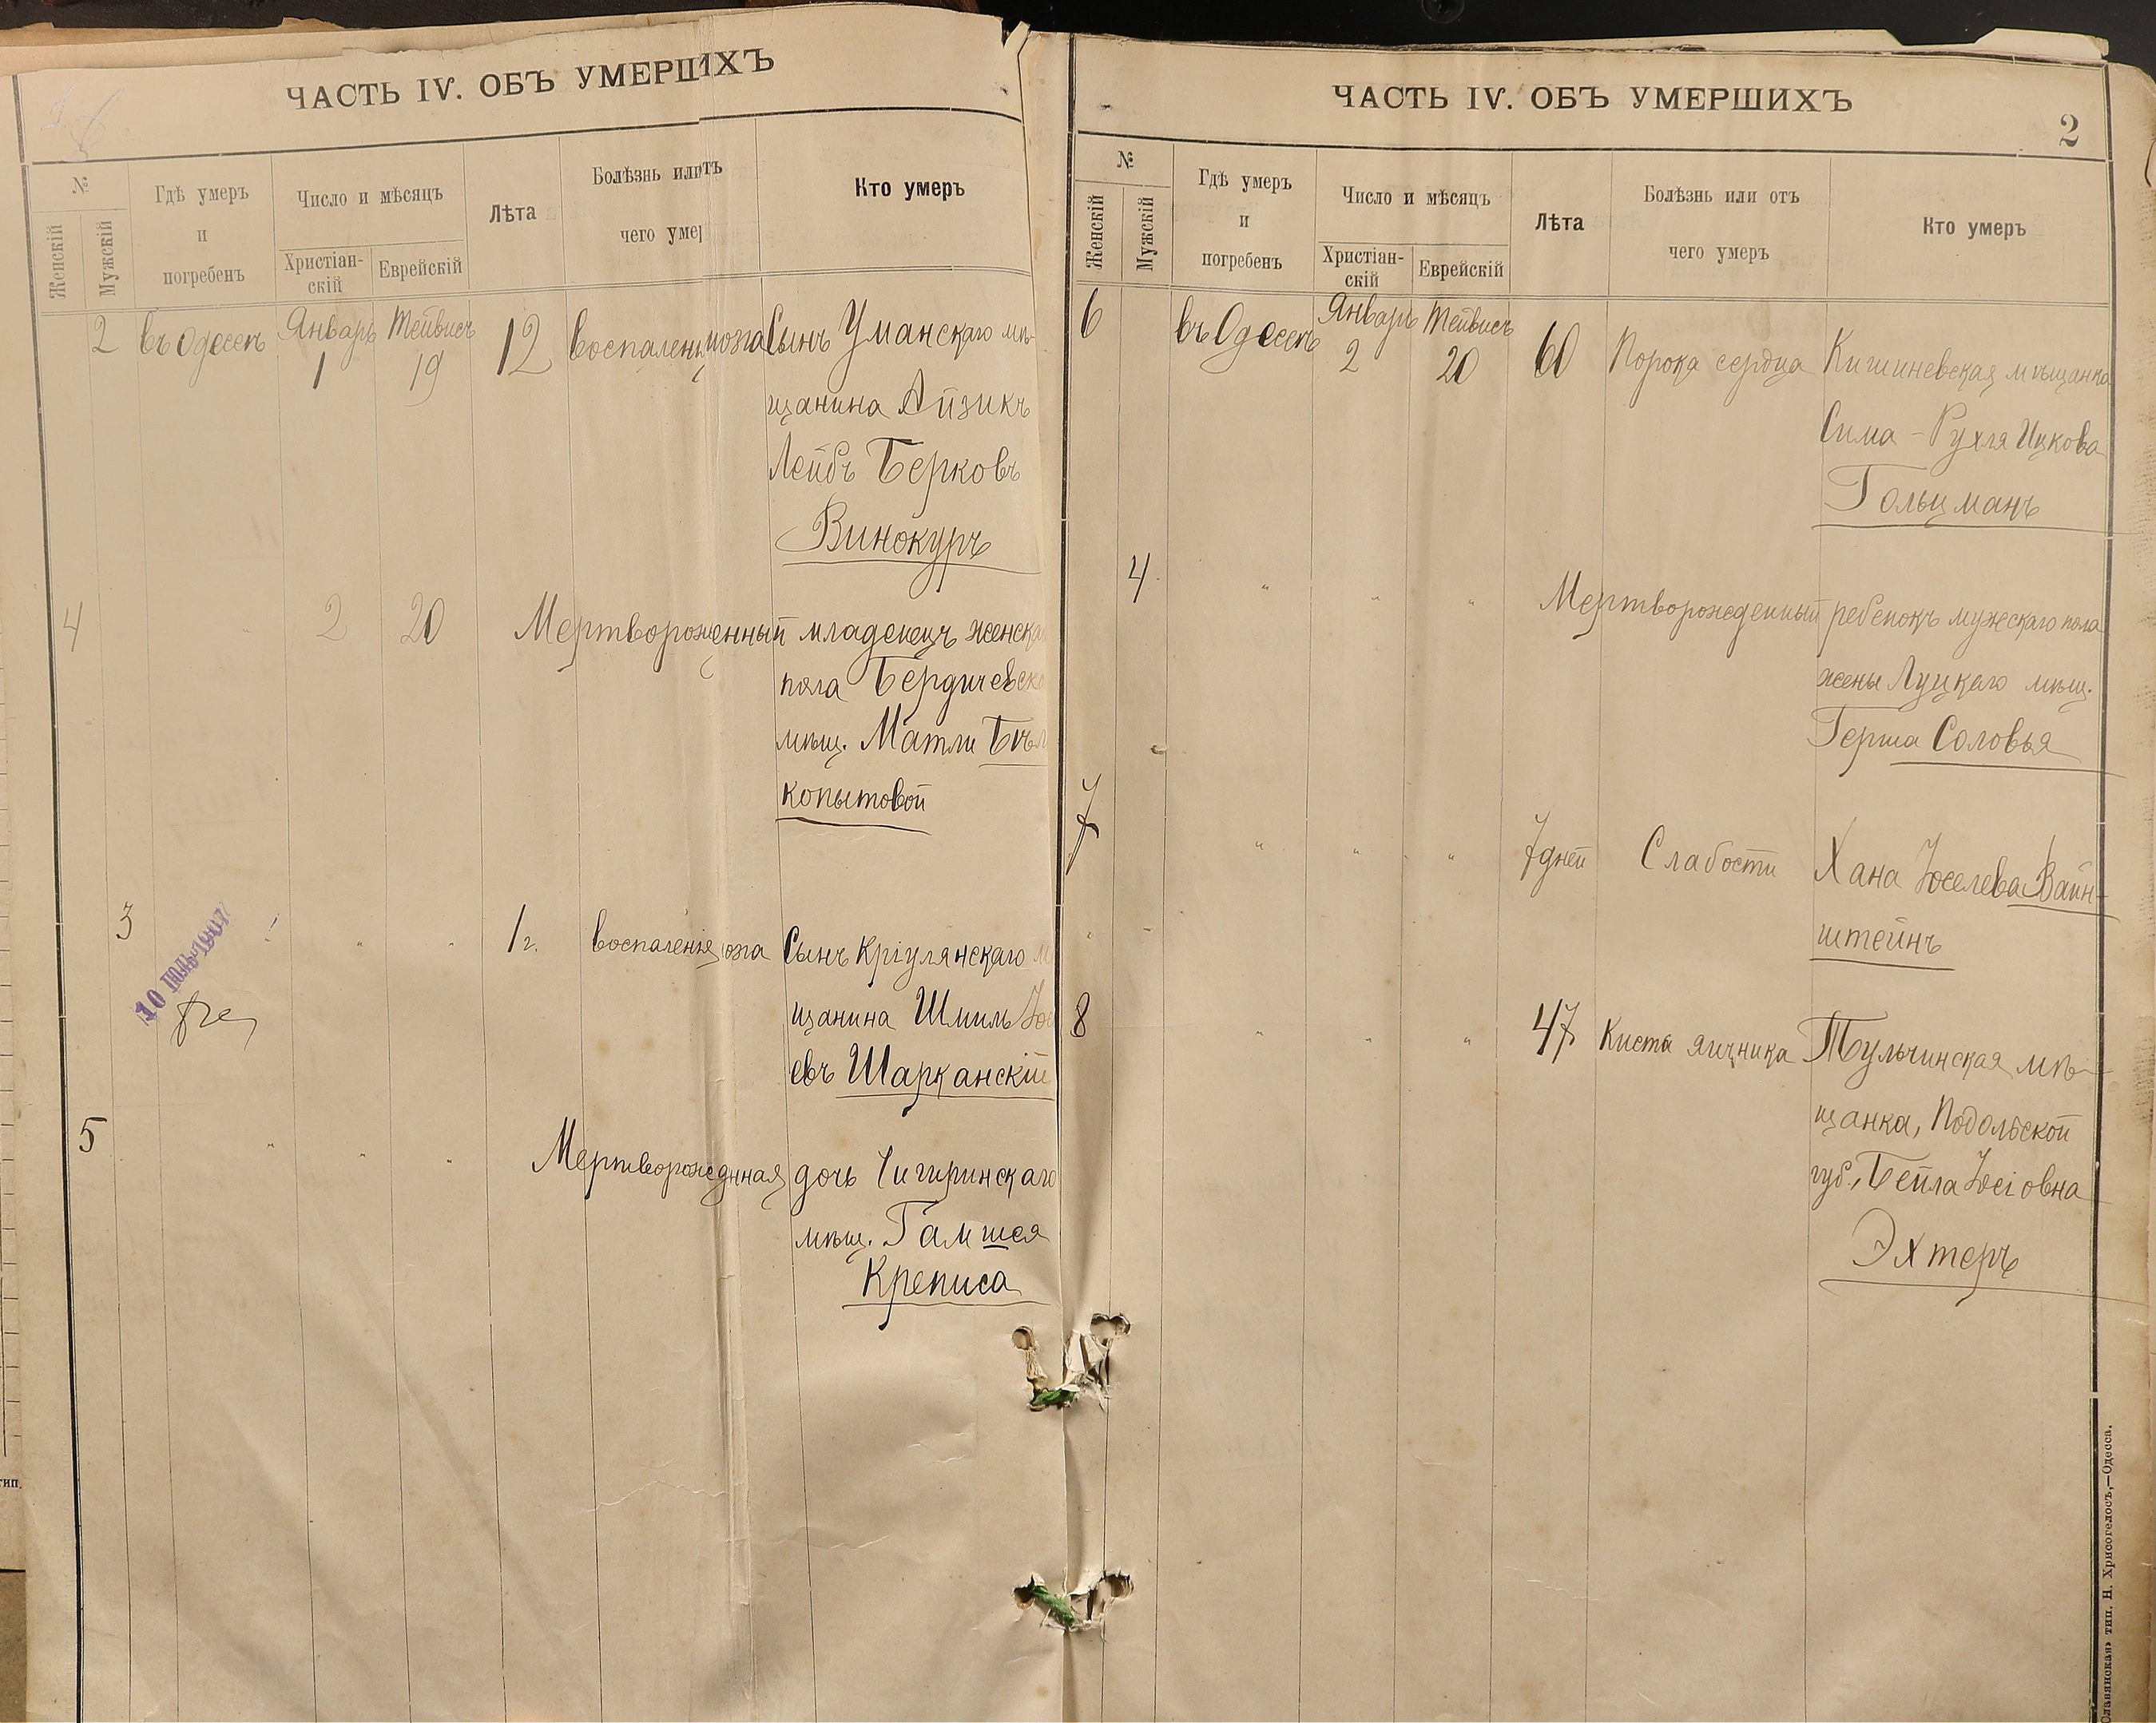 ЧАСТЬ IV. ОБЪ УМЕРШИХЪ
№
Женскій
Мужскій
Гдѣ умеръ
и
погребенъ
Число и мѣсяцъ
Христіан-
скій
Еврейскій
Лѣта
Болѣзнь или отъ
чего умер
Кто умеръ
2 въ Одессѣ Январь 1 Тейвисъ 19 12 воспаленія мозга Сынъ Уманскаго мѣ-
щанина Айзикъ
Лейбъ Берковъ
Винокуръ
4 " 2 20 Мертворожденный младенецъ женска
пола Бердичевско
мѣщ. Матли Бѣл
копытовой
3 " " " 1 г. воспаленія мозга Сынъ Кріулянскаго м
щанина Шмиль Іос
евъ Шарканскій
10 ІЮЛЬ 1907
5 " " " Мертворожденная дочь Чигиринскаго
мѣщ. Гамшея
Крениса
ЧАСТЬ IV. ОБЪ УМЕРШИХЪ
2
№
Женскій
Мужскій
Гдѣ умеръ
и
погребенъ
Число и мѣсяцъ
Христіан-
скій
Еврейскій
Лѣта
Болѣзнь или отъ
чего умеръ
Кто умеръ
6 въ Одессѣ Январь 2 Тейвисъ 20 60 Порока сердца Кишиневская мѣщанка
Сима-Рухля Ицкова
Гольцманъ
4 " " " Мертворожденный ребенокъ мужскаго пола
жены Луцкаго мѣщ.
Герша Соловья
7 " " " 7 дней Слабости Хана Іоселева Вайн-
штейнъ
8 " " " 47 Киста яичника Тульчинская мѣ-
щанка, Подольской
губ., Бейла Іосіовна
Эхтеръ
Славянская» тип. Н. Хрисогелосъ,—Одесса.
тип.